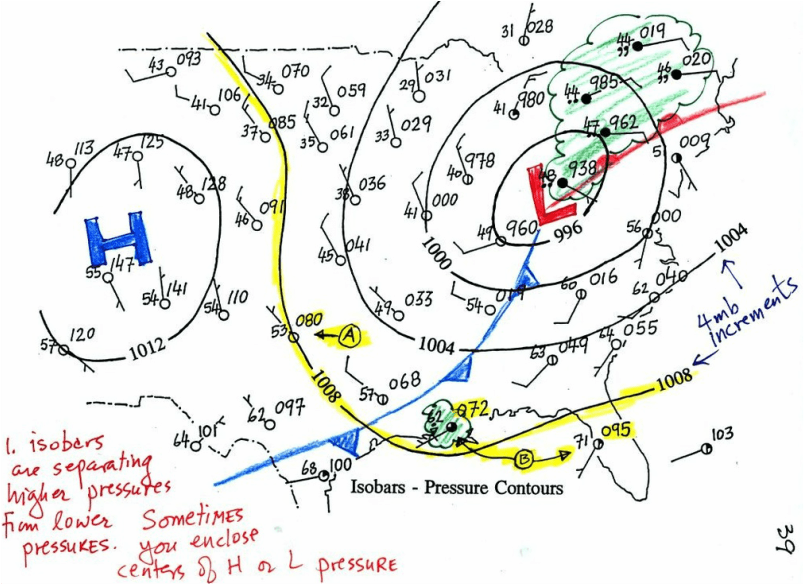 31 028
44 019
43 093
34 070
29 031
46 020
41 106
32 059
41 980
44 985
37 085
35 061
33 029
47 962
009
48 113
47 125
48 128
46 091
38 036
40 978
48 938
L
H
41 000
49 960
996
56 000
1000
1004
45 041
55 147
54 141
54 110
49 033
54
60 016
62 040
4mb
increments
57 120
1012
53 080
A
1004
63 049
64 055
1008
57 068
1008
62 097
072
64 101
71 095
103
68 100
B
Isobars - Pressure Contours
1. isobars
are separating
higher pressures
from lower
pressures.
Sometimes
you enclose
centers of H or L pressure
39